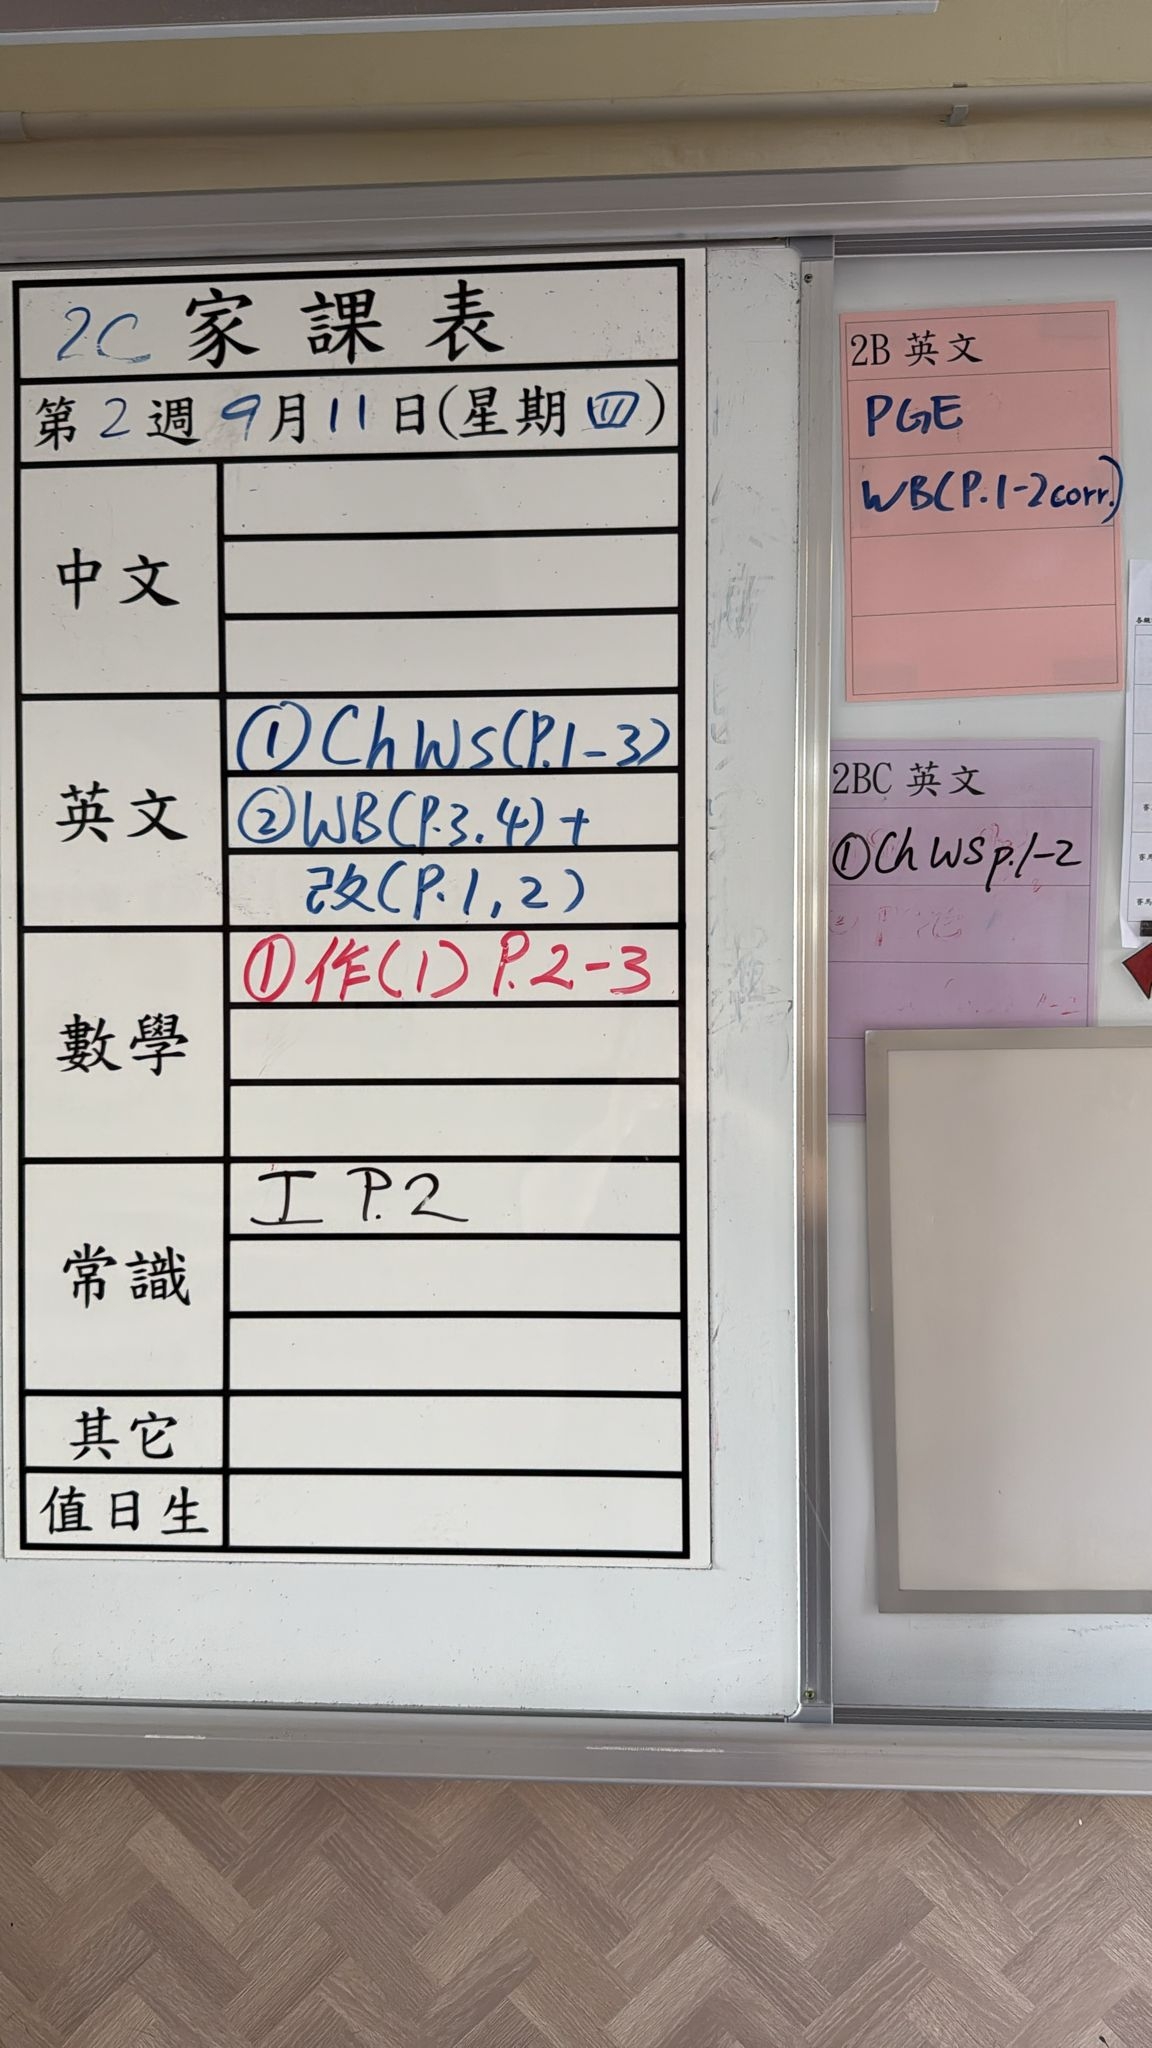 2C 家課表
第2週 9月11日(星期四)
中文
英文
①Ch WS(P.1-3)
②WB(P.3.4)+
改(P.1,2)
數學
①作(1) P.2-3
常識
工 P.2
其它
值日生
2B 英文
PGE
WB(P.1-2corr.)
2BC 英文
①Ch WS p.1-2